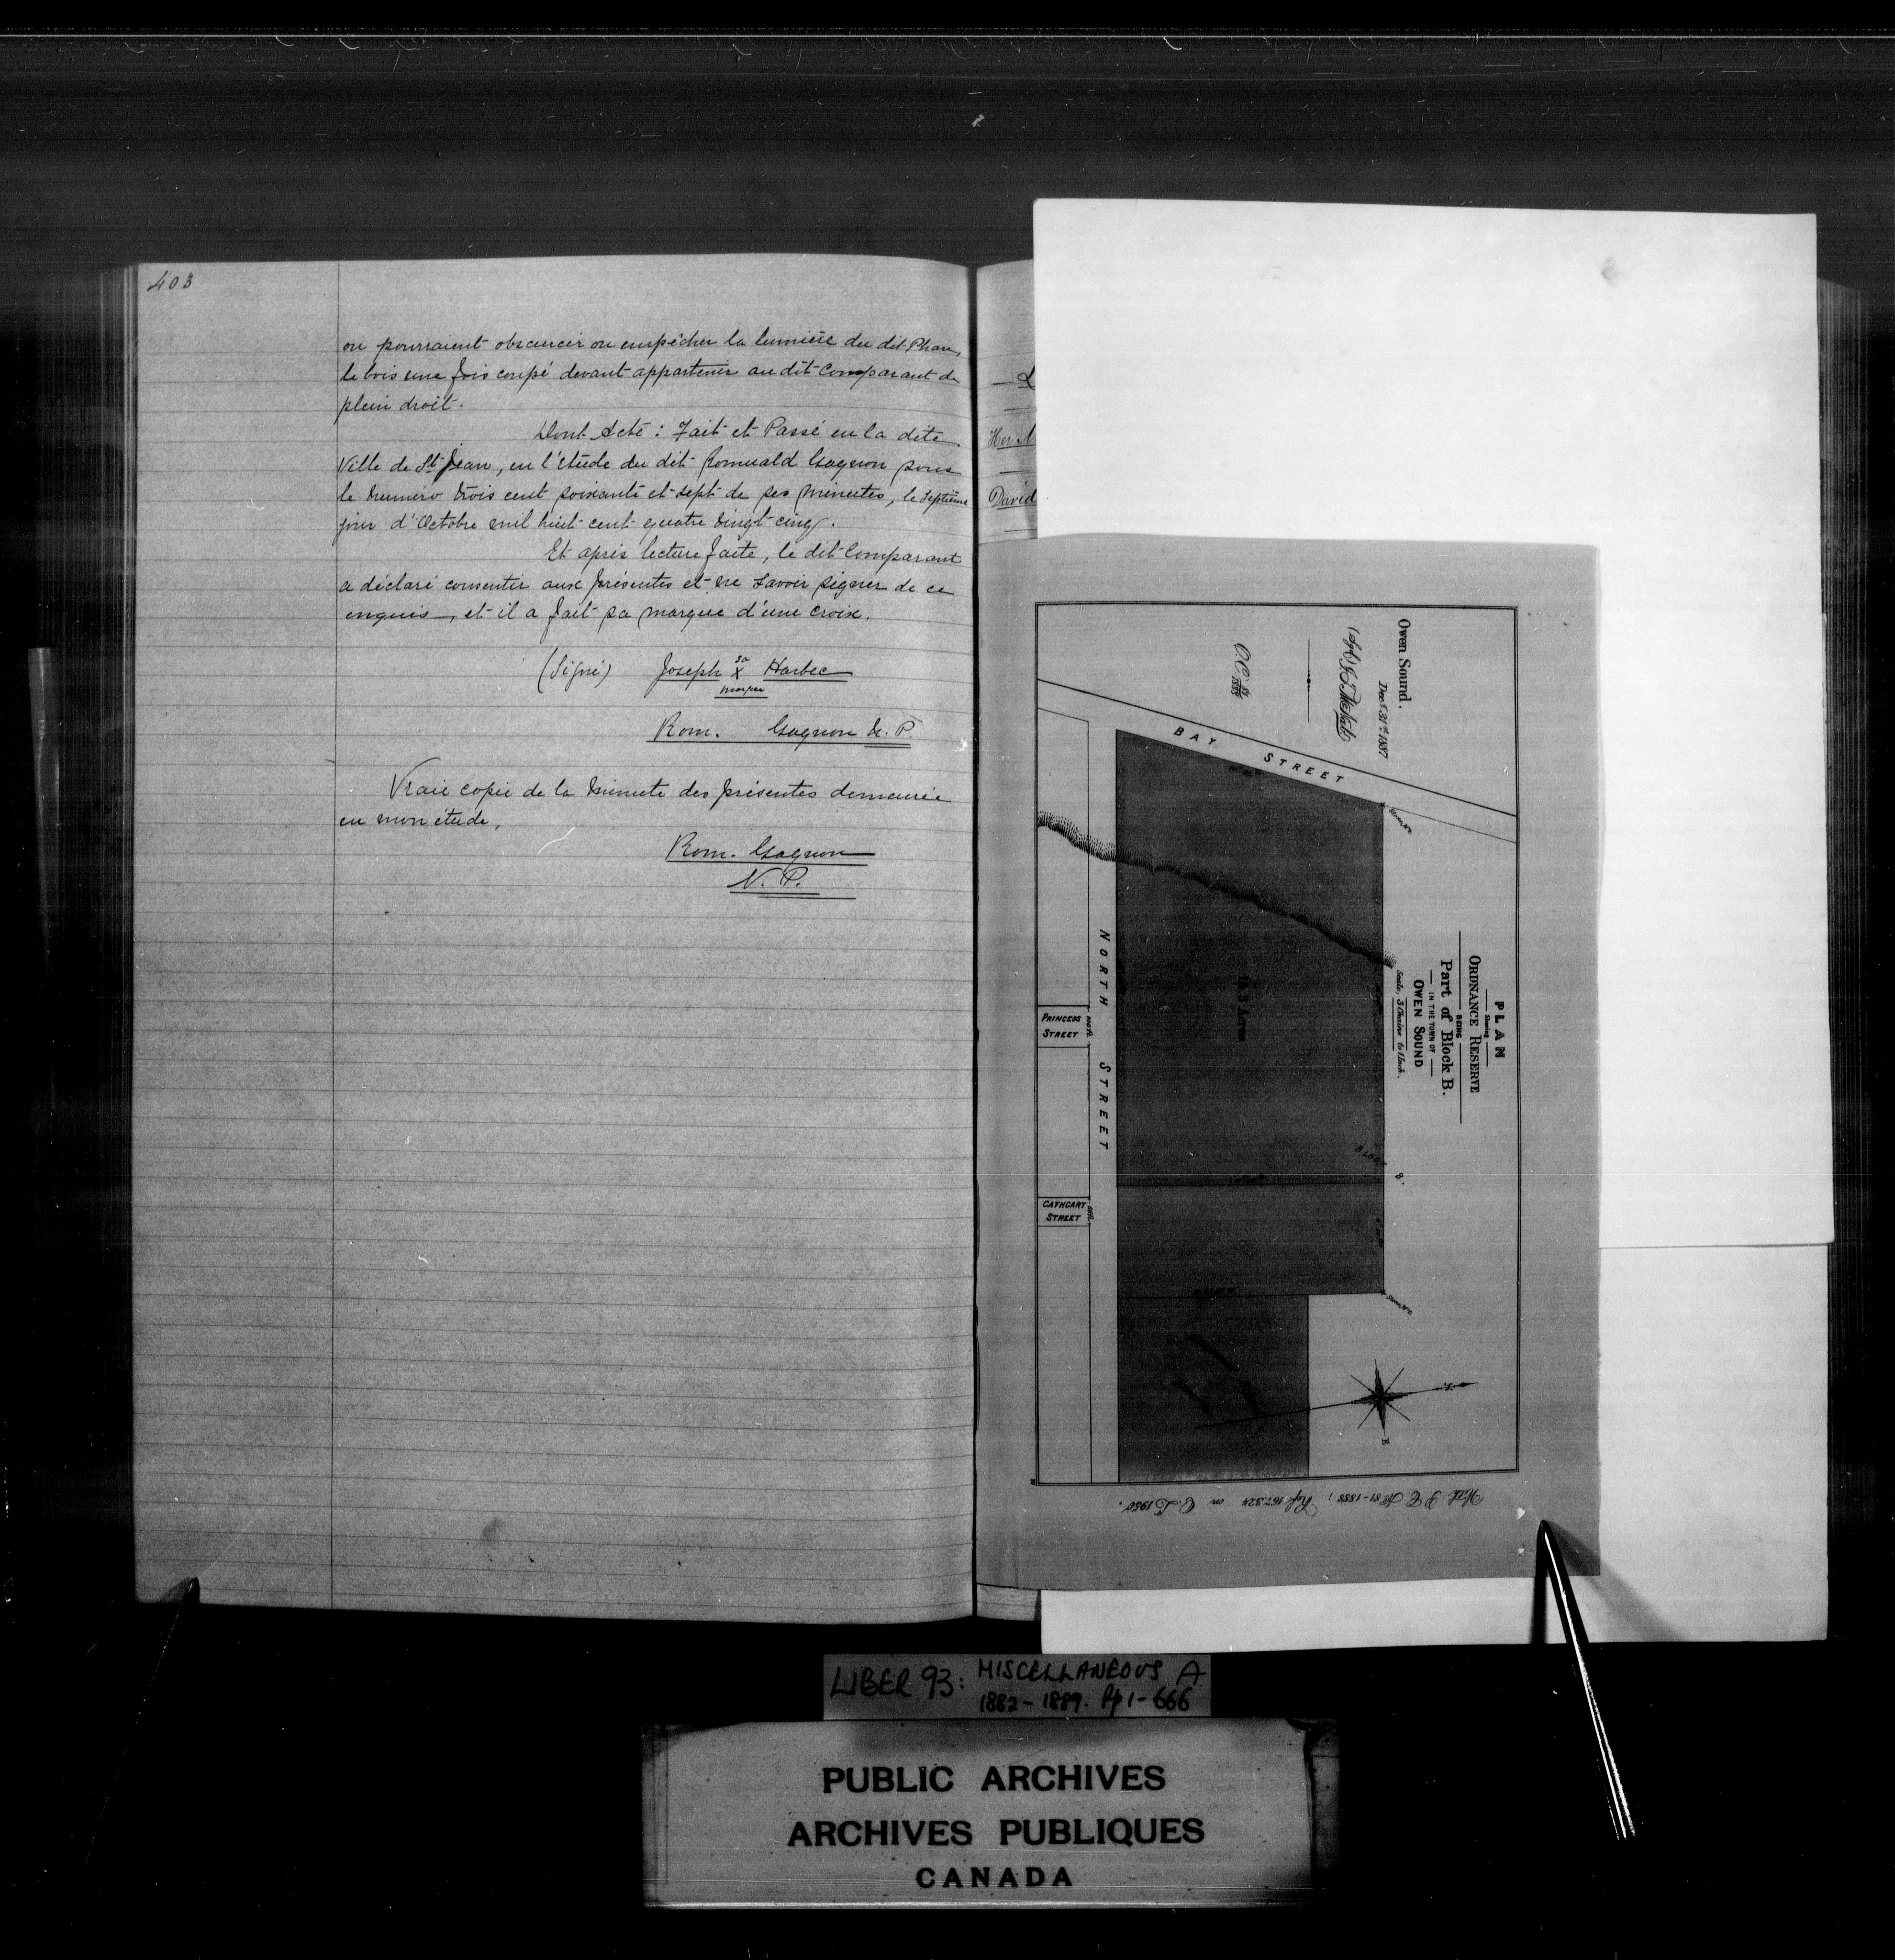 403
ou pourraient obscurcir ou empêcher la lumière du dit Phare,
le bois une fois coupé devant appartenir au dit Comparant de
plein droit.
Dont Acte : Fait et Passé en la dite
Ville de St Jean, en l'étude du dit Romuald Gagnon sous
le numéro trois cent soixante et sept de ses minutes, le septième
jour d'Octobre mil huit cent quatre vingt cinq.
Et après lecture faite, le dit Comparant
a déclaré consentir aux présentes et ne savoir signer de ce
enquis, et il a fait sa marque d'une croix.
(Signé) Joseph sa X marque Harbec
Rom. Gagnon N. P.
Vraie copie de la minute des présentes demeurée
en mon étude,
Rom. Gagnon
N. P.
Her M
David
PLAN
Shewing
ORDNANCE RESERVE
BEING
Part of Block B.
IN THE TOWN OF
OWEN SOUND
Scale, 3 Chains to 1 Inch.
Owen Sound.
Decr 31st 1887
BAY STREET
NORTH STREET
PRINCESS
STREET
CATHCART
STREET
Acres
BLOCK B'
E
1888
1950
LIBER 93: MISCELLANEOUS A
1882-1889. Pp 1-666
PUBLIC ARCHIVES
ARCHIVES PUBLIQUES
CANADA